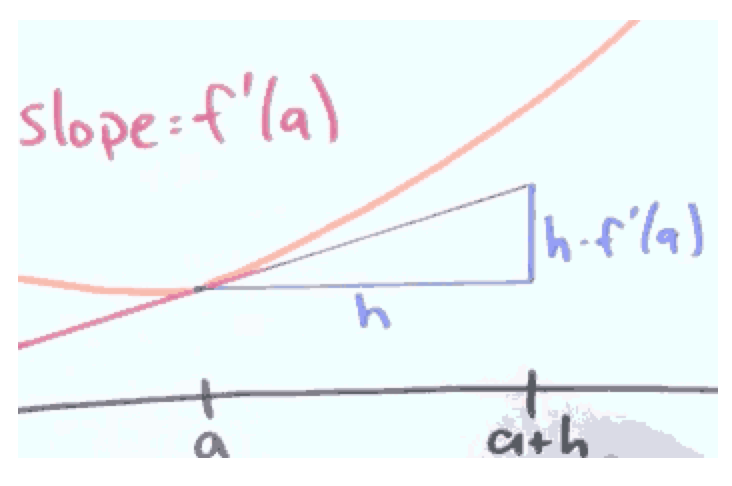 slope=f'(a)
h·f'(a)
h
a
a+h